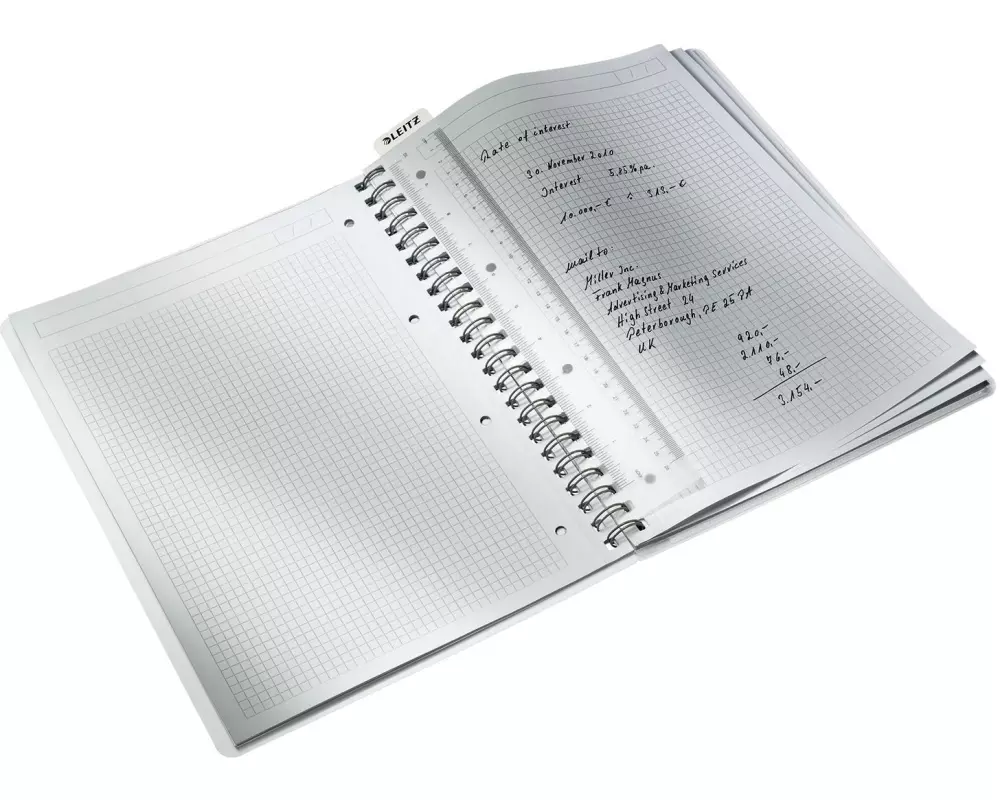 LEITZ
Rate of interest
30. November 2010
Interest 5,85% pa.
10.000,- € : 313,- €
mail to:
Miller Inc.
Frank Magnus
Advertising & Marketing Services
High Street 24
Peterborough, PE 25 PA
UK
920,-
2110,-
76,-
48,-
3.154,-